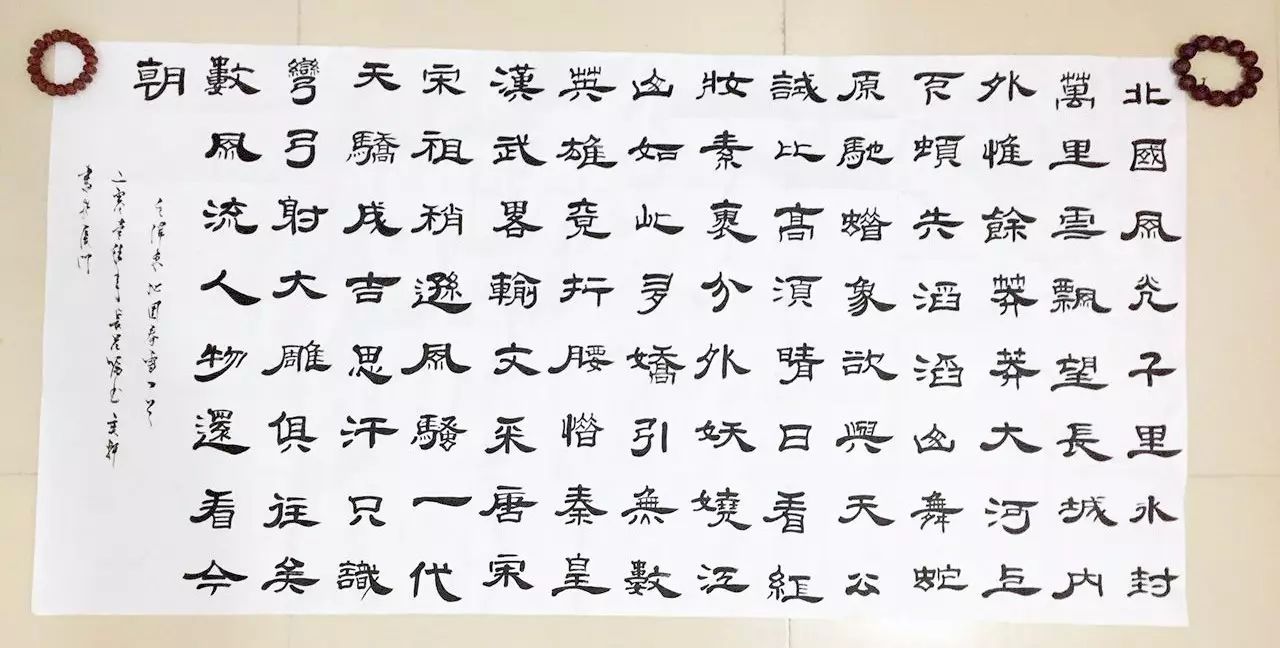 北國風光千里冰封
萬里雲飄望長城内
外惟餘莽莽大河上
下頓失滔滔山舞蛇
原馳蠟象欲與天公
試比高須晴日看紅
妝素裹分外妖嬈江
山如此多嬌引無數
英雄競折腰惜秦皇
漢武畧輸文采唐宗
宋祖稍遜風騷一代
天驕成吉思汗只識
彎弓射大雕俱往矣
數風流人物還看今
朝
毛澤東沁園春雪一首